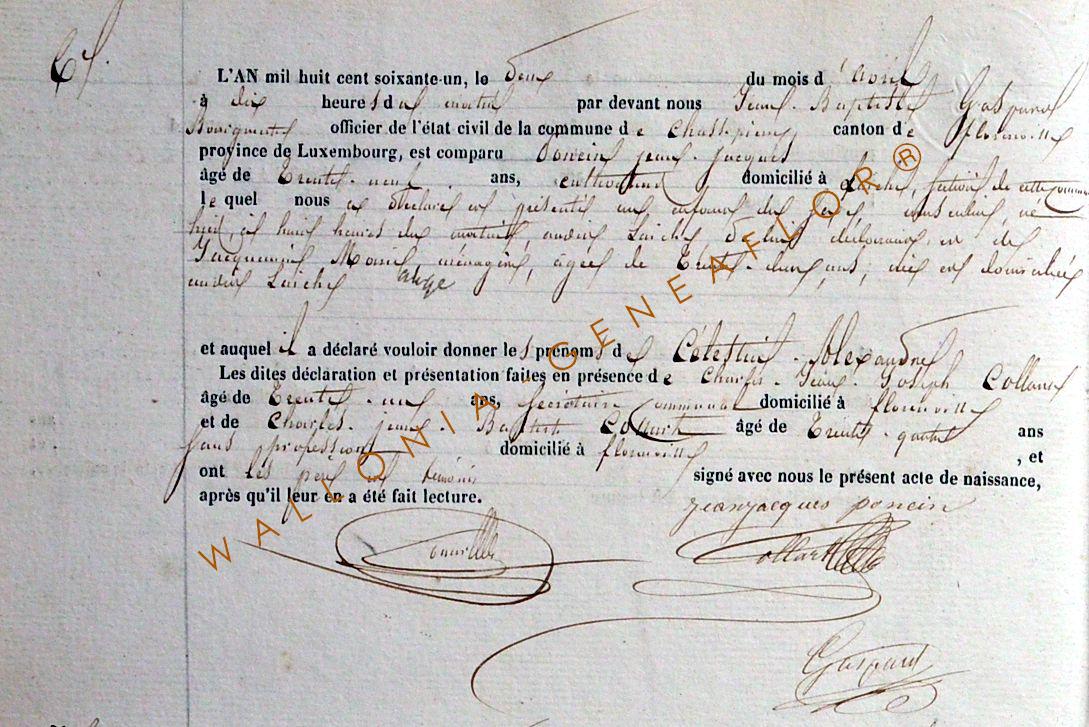 6.
L'AN mil huit cent soixante-un, le deux du mois d'avril
à dix heures du matin par devant nous Jean-Baptiste Gaspard
Bourgmestre officier de l'état civil de la commune de Chassepierre, canton de florenville
province de Luxembourg, est comparu Poncin jean-jacques
âgé de Trente-neuf ans, domicilié à Laiche, section de cette commune
lequel nous a déclaré et présenté un enfant du sexe masculin, né
huit heures du matin, audit Laiche, de lui déclarant et de
Jacquemin Marie, ménagère, âgée de Trente-deux ans, domiciliée
audit Laiche
et auquel il a déclaré vouloir donner les prénoms de Célestin-Alexandre
Les dites déclaration et présentation faites en présence de Charles-Jean-Joseph Collart
âgé de Trente-un ans, Secrétaire communal domicilié à florenville
et de Charles-jean-Baptiste âgé de Trente-quatre ans
sans profession domicilié à florenville, et
ont les père et témoins signé avec nous le présent acte de naissance,
après qu'il leur en a été fait lecture.
jeanjacques poncin
Collart
Gaspard
WALLONIA-GENEAFLOR®